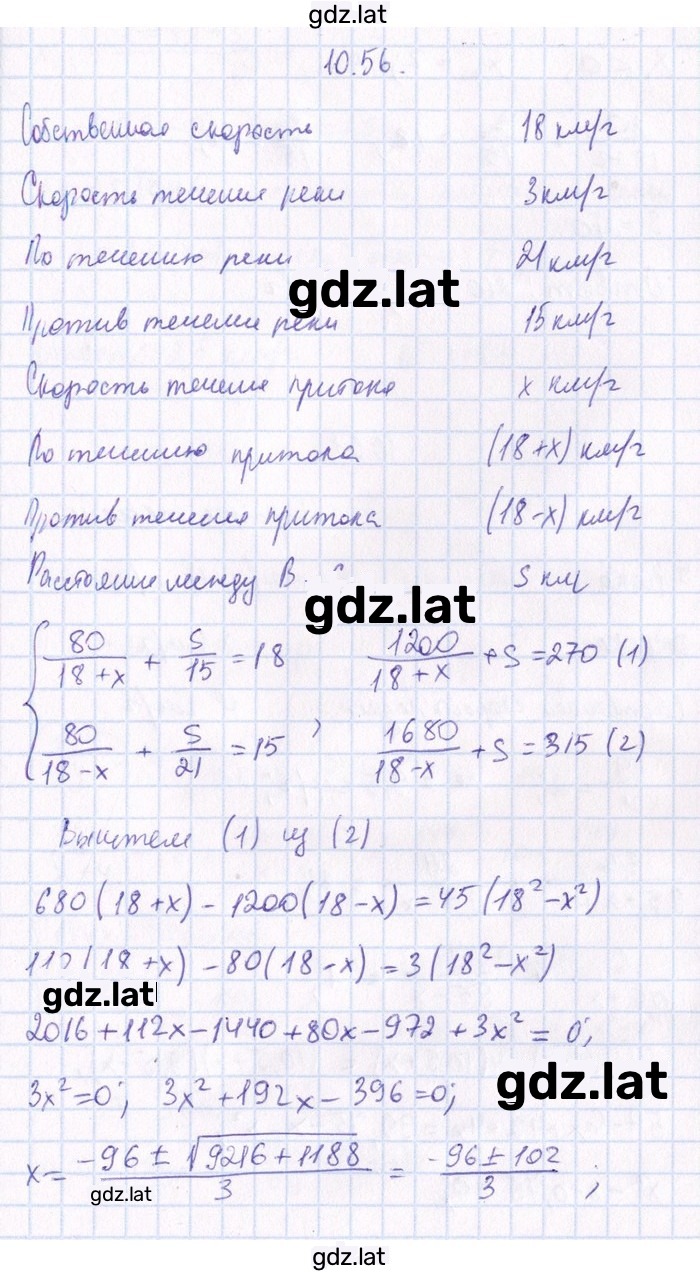 gdz.lat
10.56.
Собственная скорость 18 км/ч
Скорость течения реки 3км/ч
По течению реки 21 км/ч
gdz.lat
Против течения реки 15 км/ч
Скорость течения притока x км/ч
По течению притока (18+x) км/ч
Против течения притока (18-x) км/ч
Расстояние между В. S км
gdz.lat
{ 80/(18+x) + S/15 = 18 1200/(18+x) + S = 270 (1)
80/(18-x) + S/21 = 15 , 1680/(18-x) + S = 315 (2)
Вычтем (1) из (2)
680(18+x) - 1200(18-x) = 45(18²-x²)
(18+x) - 80(18-x) = 3(18²-x²)
gdz.lat
2016+112x-1440+80x-972+3x²=0;
gdz.lat
3x²=0; 3x²+192x-396=0;
x= (-96±√(9216+1188))/3 = (-96±102)/3 ;
gdz.lat
gdz.lat